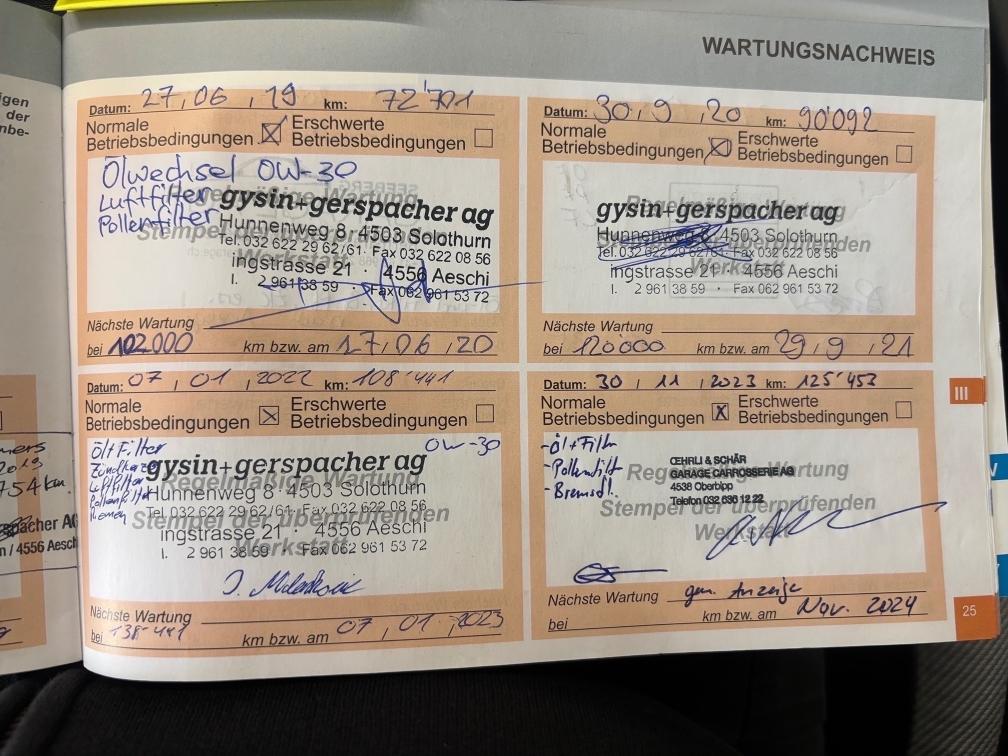 WARTUNGSNACHWEIS
igen
der
nbe-
Datum: 27,06,19 km: 72'701
Normale
Betriebsbedingungen
Erschwerte
Betriebsbedingungen
Ölwechsel OW-30
Luftfilter
Pollenfilter
Regelmäßige Wartung
Stempel der überprüfenden
Werkstatt
gysin+gerspacher ag
Hunnenweg 8 · 4503 Solothurn
Tel. 032 622 29 62/61 · Fax 032 622 08 56
ingstrasse 21 · 4556 Aeschi
l. 2 961 38 59 · Fax 062 961 53 72
Nächste Wartung
bei 102000 km bzw. am 17,06,20
Datum: 30.9,20 km: 90'092
Normale
Betriebsbedingungen
Erschwerte
Betriebsbedingungen
Regelmäßige Wartung
Stempel der überprüfenden
Werkstatt
gysin+gerspacher ag
Hunnenweg 8 · 4503 Solothurn
Tel. 032 622 29 62/61 · Fax 032 622 08 56
ingstrasse 21 · 4556 Aeschi
l. 2 961 38 59 · Fax 062 961 53 72
Nächste Wartung
bei 120'000 km bzw. am 29,9,21
Datum: 07,01,2022 km: 108'441
Normale
Betriebsbedingungen
Erschwerte
Betriebsbedingungen
Öl+Filter OW-30
Luftfilter
Pollenfilter
Riemen
Regelmäßige Wartung
Stempel der überprüfenden
Werkstatt
gysin+gerspacher ag
Hunnenweg 8 · 4503 Solothurn
Tel. 032 622 29 62/61 · Fax 032 622 08 56
ingstrasse 21 · 4556 Aeschi
l. 2 961 38 59 · Fax 062 961 53 72
Nächste Wartung
bei 138'441 km bzw. am 07,01,2023
Datum: 30,11,2023 km: 125'453
Normale
Betriebsbedingungen
Erschwerte
Betriebsbedingungen
-Öl+Filter
-Pollenfilt
-Bremsfl.
Regelmäßige Wartung
Stempel der überprüfenden
Werkstatt
ŒHRLI & SCHÄR
GARAGE CARROSSERIE AG
4538 Oberbipp
Telefon 032 636 12 22
Nächste Wartung gem. Anzeige
bei km bzw. am Nov. 2024
mers
2019
754 km
spacher AG
n / 4556 Aesch
III
V
25